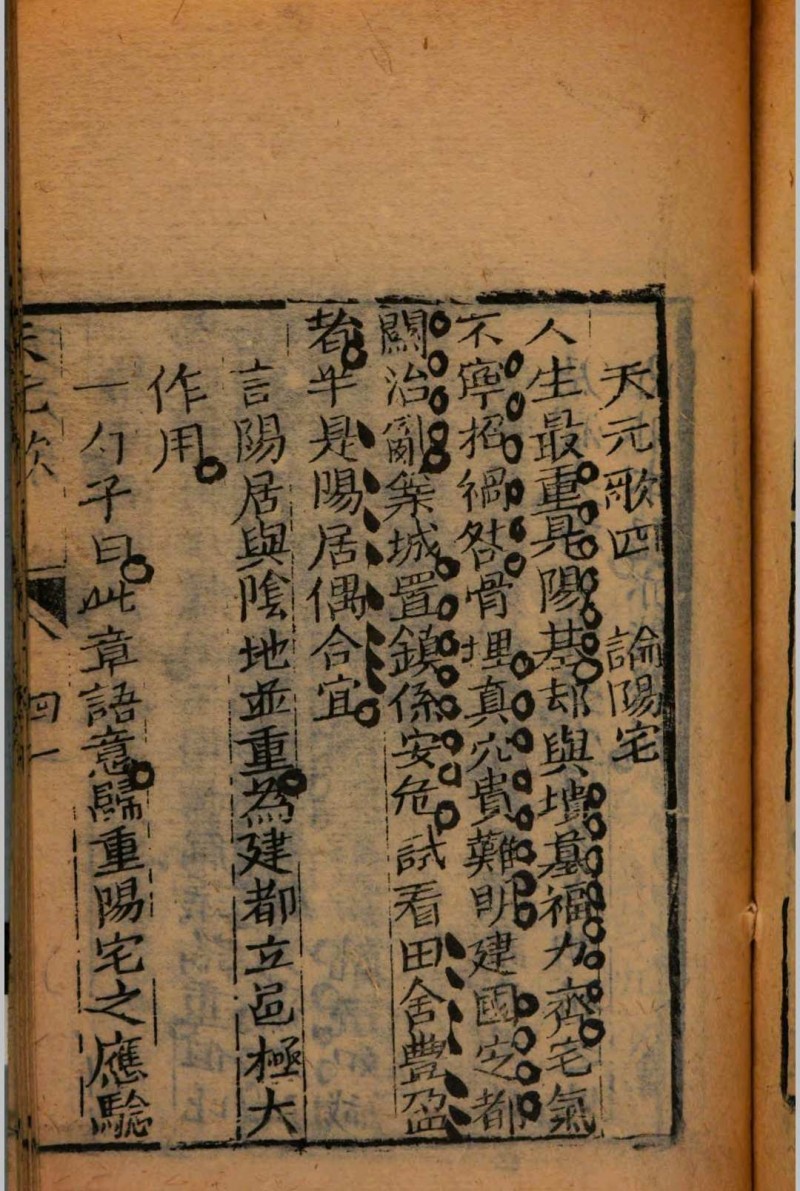 天元歌四 論陽宅
人生最重是陽基却與墳墓福力齊宅氣
不寧招禍咎骨埋真穴貴難明建國定都
關治亂築城置鎮係安危試看田舍豐盈
者半是陽居偶合宜
言陽居與陰地並重為建都立邑極大
作用
一勺子曰此章語意歸重陽宅之應驗
天元歌 四 一